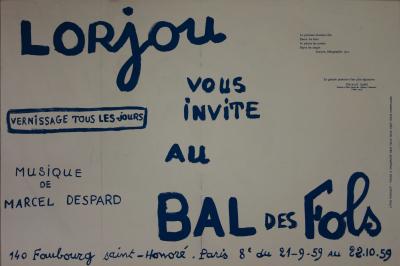 LORjou
VOUS
INVITE
VERNISSAGE TOUS LES jOURS
AU
MUSIQUE
DE
MARCEL DESPARD
BAL DES FOLS
140 Faubourg saint-Honoré. Paris 8e du 21-9-59 au 22.10.59